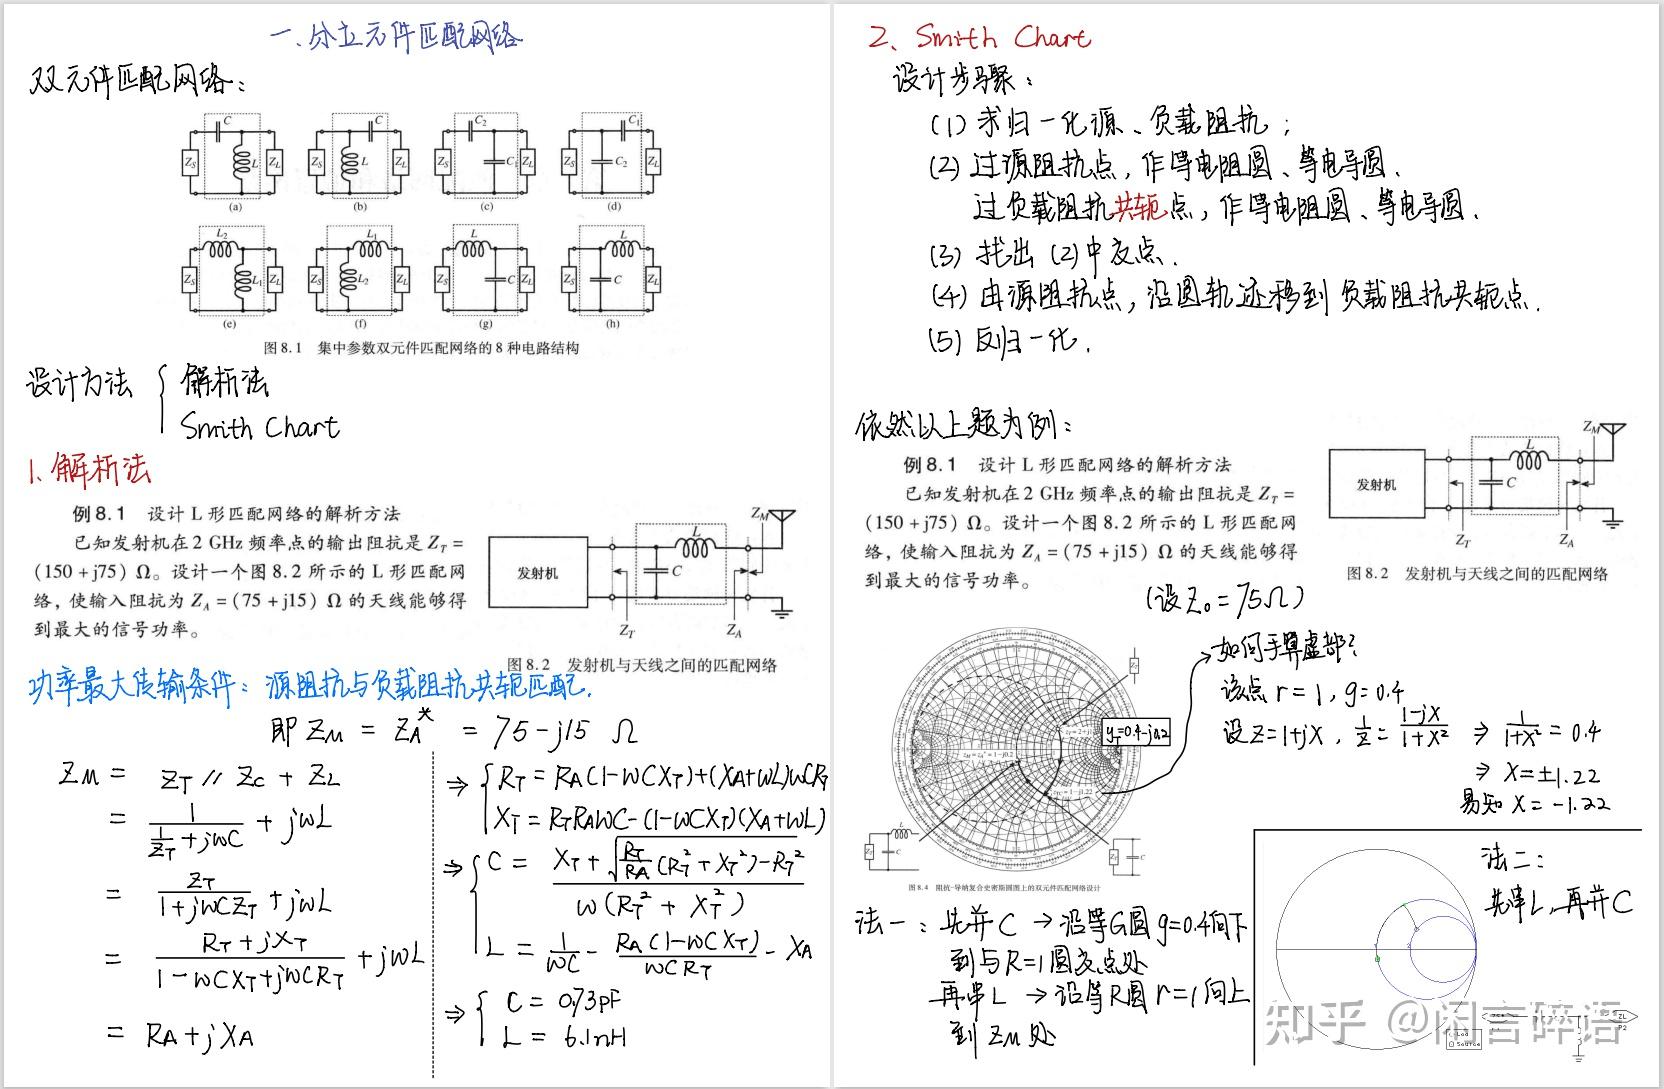 一、分立元件匹配网络
双元件匹配网络：
C L Zs ZL (a)
C L Zs ZL (b)
C2 C1 Zs ZL (c)
C1 C2 Zs ZL (d)
L2 L1 Zs ZL (e)
L1 L2 Zs ZL (f)
L C Zs ZL (g)
L C Zs ZL (h)
图 8.1 集中参数双元件匹配网络的 8 种电路结构
设计方法 { 解析法
Smith Chart
1、解析法
例 8.1 设计 L 形匹配网络的解析方法
已知发射机在 2 GHz 频率点的输出阻抗是 Z_T =
(150 + j75) Ω。设计一个图 8.2 所示的 L 形匹配网
络，使输入阻抗为 Z_A = (75 + j15) Ω 的天线能够得
到最大的信号功率。
发射机 L C Z_M Z_T Z_A
图 8.2 发射机与天线之间的匹配网络
功率最大传输条件：源阻抗与负载阻抗共轭匹配.
即 Z_M = Z_A* = 75 - j15 Ω
Z_M = Z_T // Z_C + Z_L
= 1/(1/Z_T + jωC) + jωL
= Z_T/(1+jωCZ_T) + jωL
= (R_T + jX_T)/(1-ωCX_T+jωCR_T) + jωL
= R_A + jX_A
⇒ { R_T = R_A(1-ωCX_T)+(X_A+ωL)ωCR_T
X_T = R_TR_AωC-(1-ωCX_T)(X_A+ωL)
⇒ { C = (X_T + √(R_T/R_A (R_T²+X_T²)-R_T²))/(ω(R_T² + X_T²))
L = 1/ωC - R_A(1-ωCX_T)/ωCR_T - X_A
⇒ { C = 0.73pF
L = 6.1nH
2、Smith Chart
设计步骤：
(1) 求归一化源、负载阻抗；
(2) 过源阻抗点，作等电阻圆、等电导圆.
过负载阻抗共轭点，作等电阻圆、等电导圆.
(3) 找出 (2)中交点.
(4) 由源阻抗点，沿圆轨迹移到负载阻抗共轭点.
(5) 反归一化.
依然以上题为例：
例 8.1 设计 L 形匹配网络的解析方法
已知发射机在 2 GHz 频率点的输出阻抗是 Z_T =
(150 + j75) Ω。设计一个图 8.2 所示的 L 形匹配网
络，使输入阻抗为 Z_A = (75 + j15) Ω 的天线能够得
到最大的信号功率。
发射机 L C Z_M Z_T Z_A
图 8.2 发射机与天线之间的匹配网络
(设 Z₀ = 75Ω)
y_T=0.4-j0.2
图 8.4 阻抗-导纳复合史密斯圆图上的双元件匹配网络设计
如何手算虚部？
该点 r = 1, g = 0.4
设 Z = 1+jX, 1/Z = (1-jX)/(1+X²) ⇒ 1/(1+X²) = 0.4
⇒ X = ±1.22
易知 X = -1.22
法一：先并 C → 沿等G圆 g=0.4向下
到与R=1圆交点处
再串 L → 沿等R圆 r=1向上
到 Z_M 处
法二：
先串 L, 再并 C
Load
Source
ZL
知乎 @闲言碎语